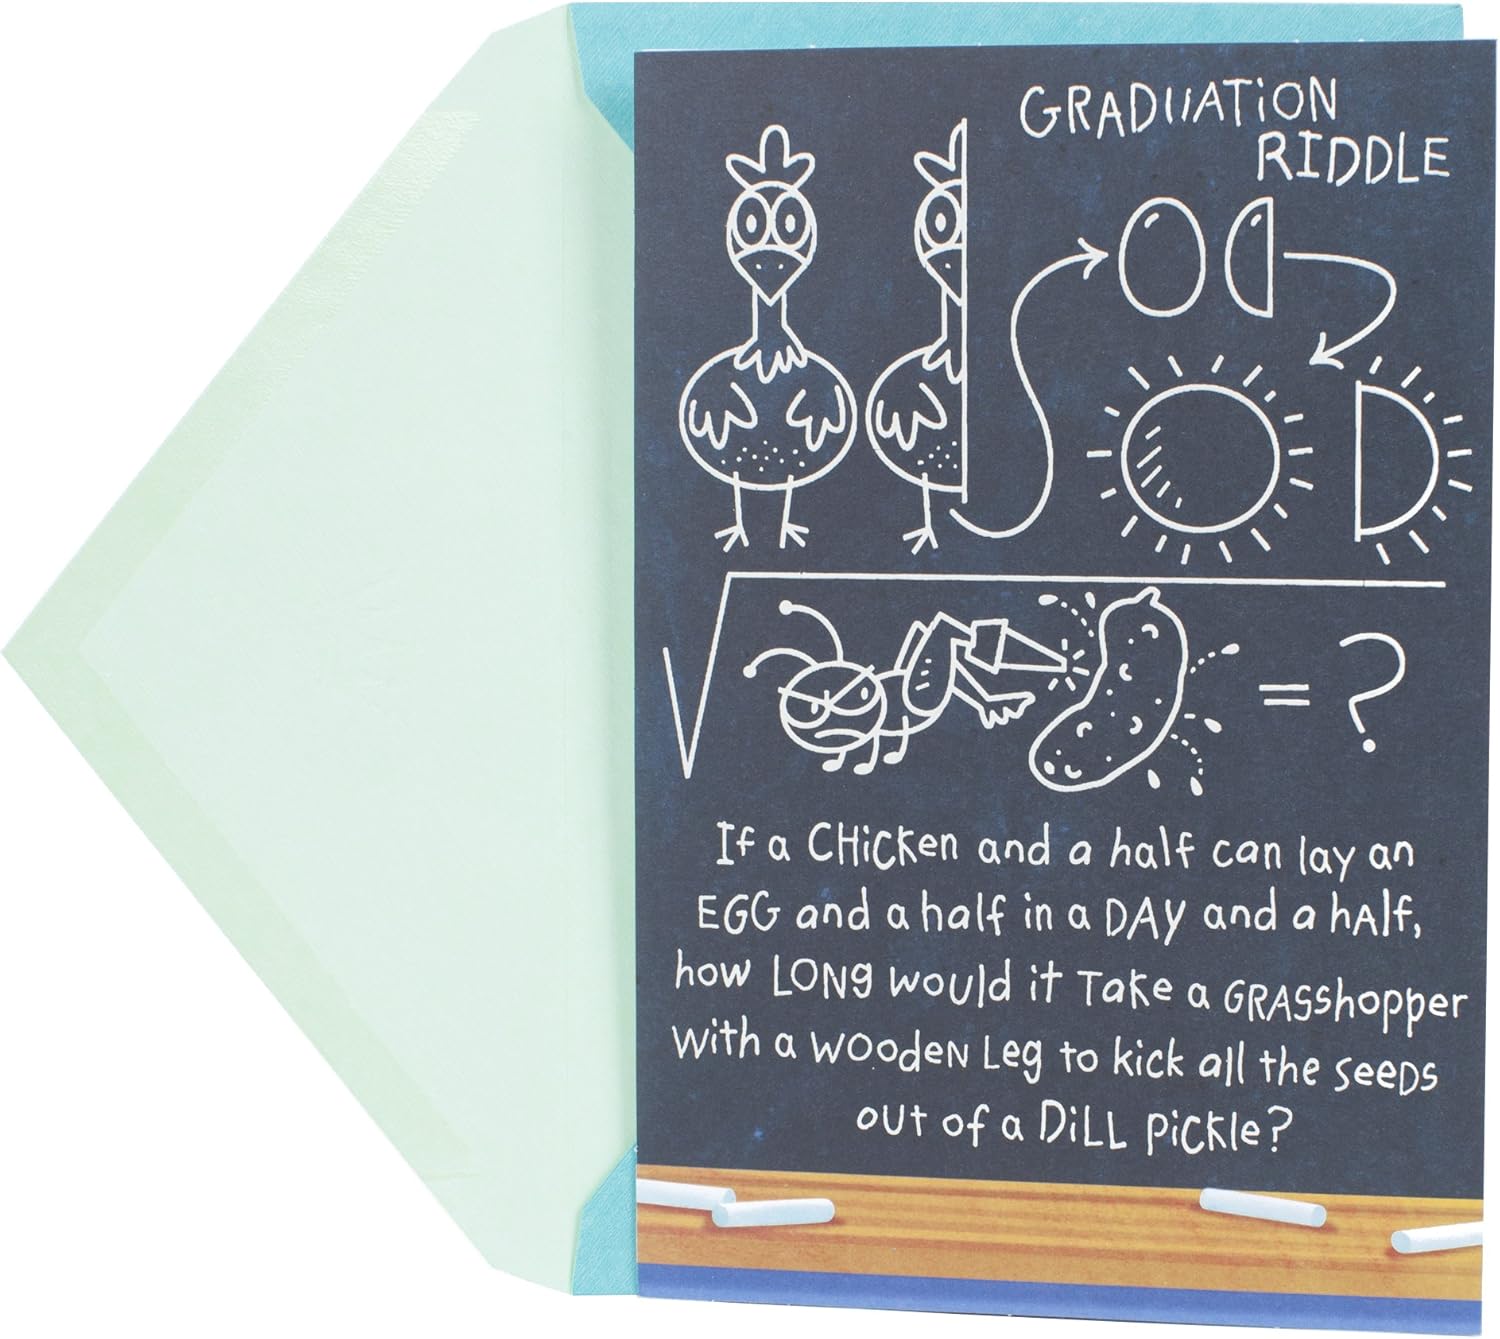 GRADUATiON
RIDDLE
= ?
If a CHicKen and a half can lay an
EGG and a half in a DAY and a hAlf,
how LONg would it TaKe a GRASshopper
with a wOOdeN Leg to kick all the seeDs
out of a DiLL picKle?